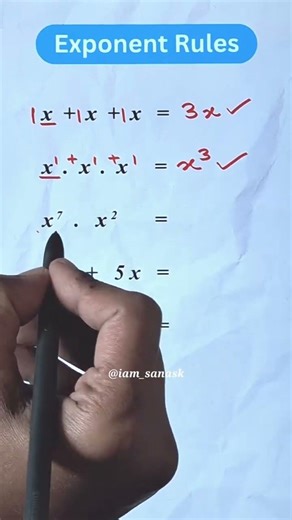 Exponent Rules
1x + 1x + 1x = 3x ✓
x¹ ·⁺ x¹ ·⁺ x¹ = x³ ✓
x⁷ . x² =
+ 5x =
=
@iam_sanask